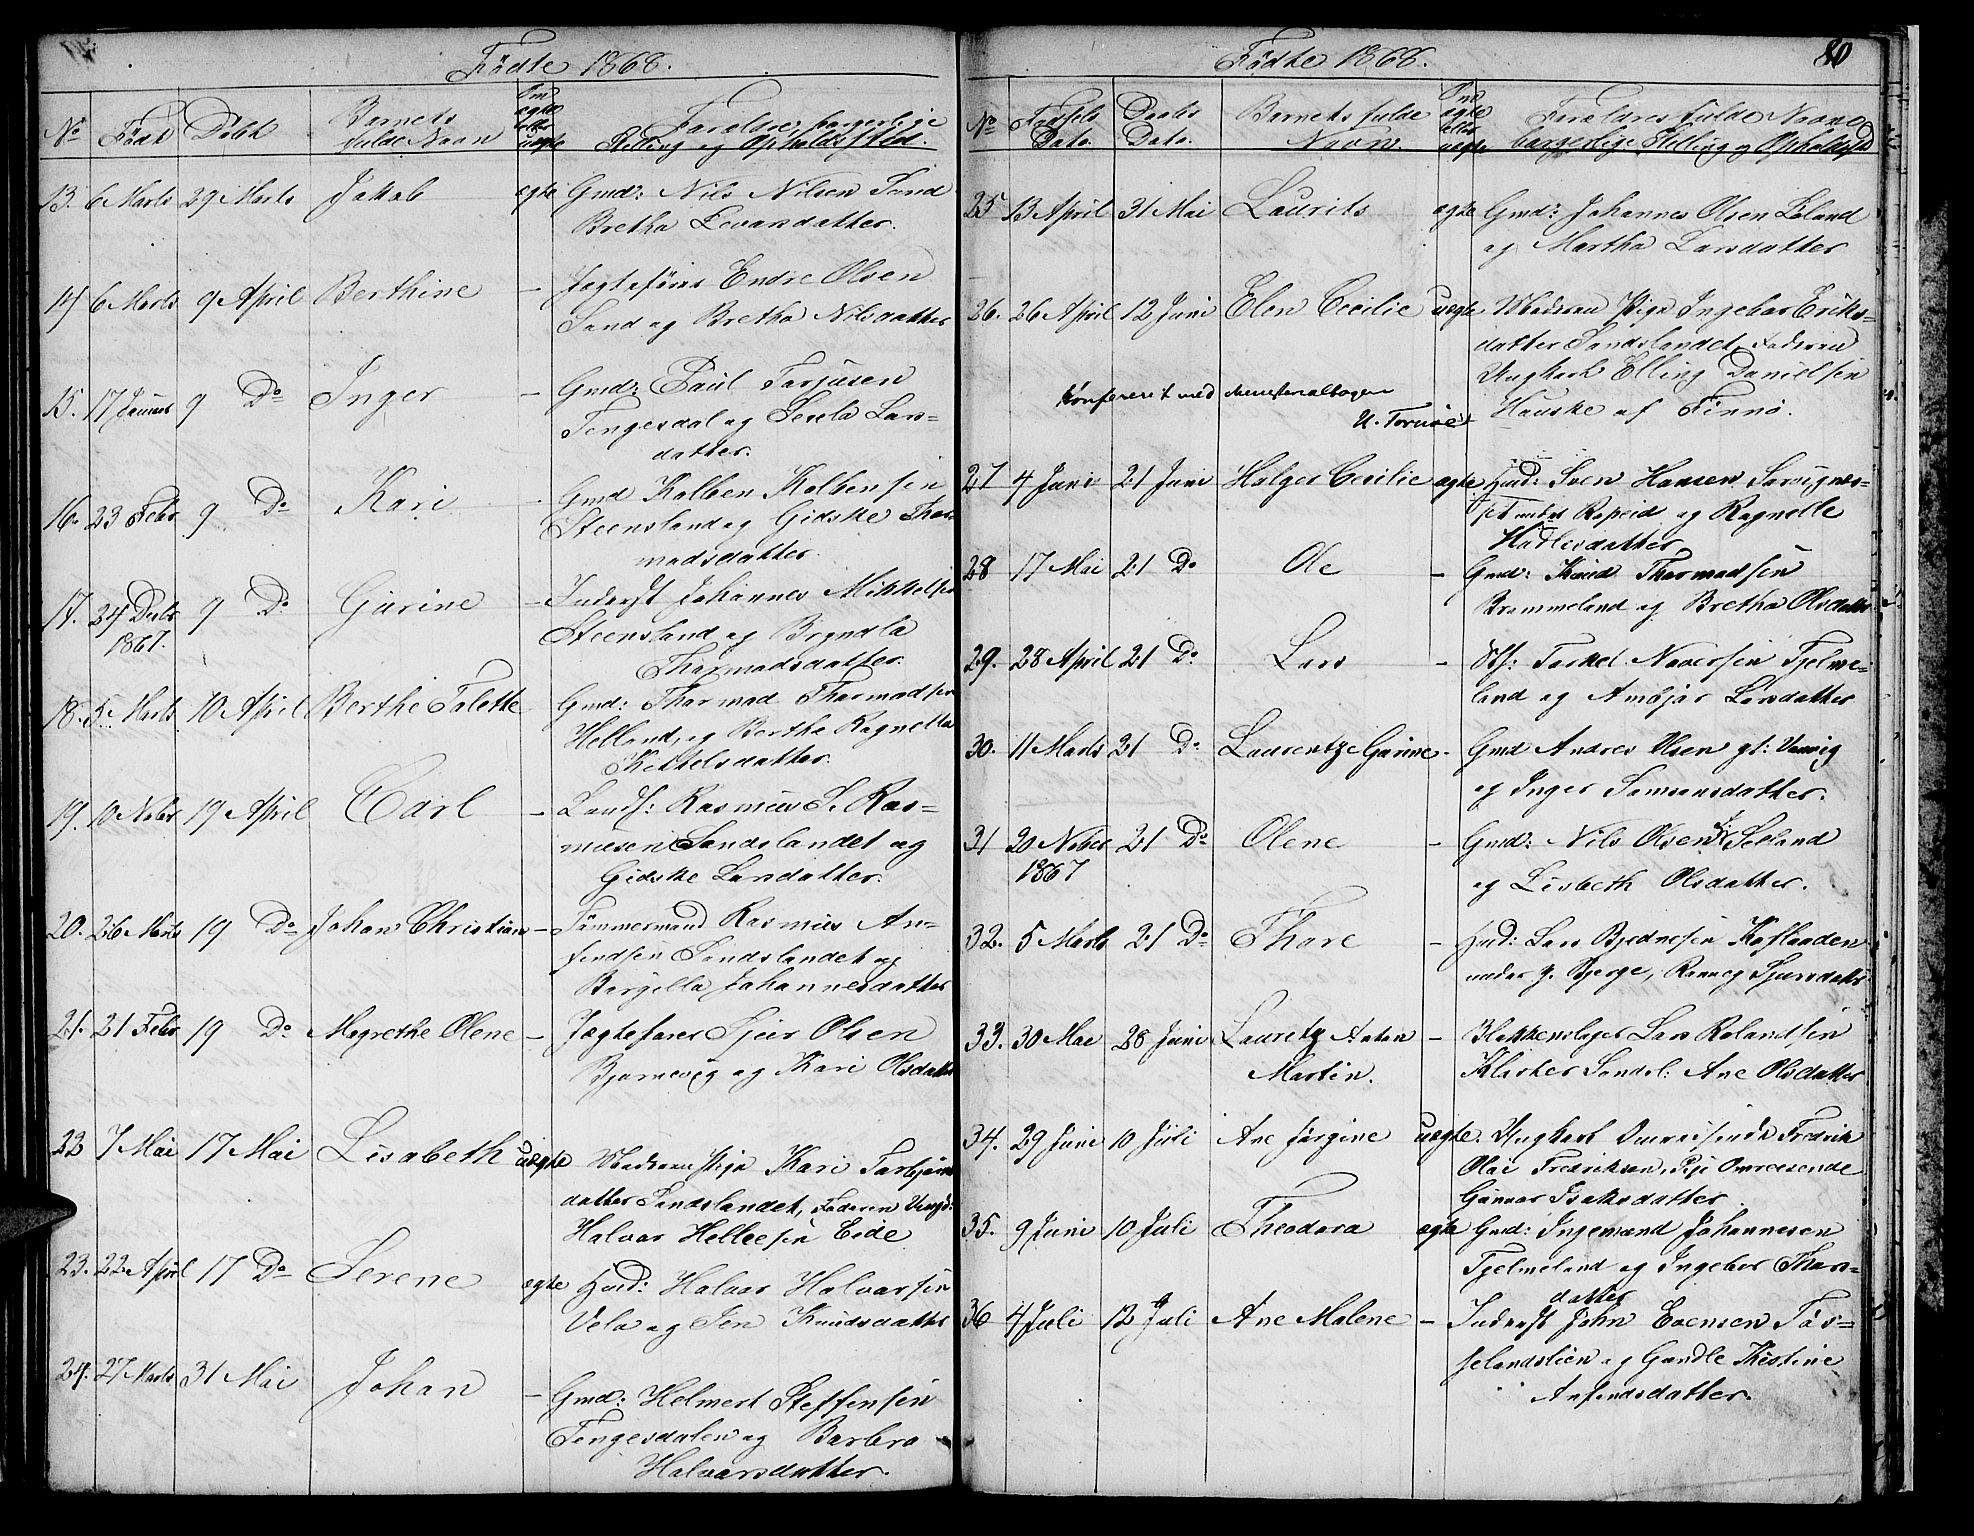 Fødte 1868.
No Født Døbt Barnets fulde Navn Om ægte eller uægte Foreldre, borgerlige Stilling og Opholdssted.
13. 6 Marts 29 Marts Jakob ægte Gmd: Nils Nilsen Sand
Bretha Levarsdatter.
14 6 Marts 9 April Berthine – Jagtefører Endre Olsen
Sand og Bretha Nilsdatter
15. 17 Januar 9 Do Inger – Gmd: Paul Tarjusen
Fengesdal og Sesela Lars=
datter.
16. 23 Febr 9 Do Kari – Gmd Kolben Kolbensen
Steensland og Gidske Thor
madsdatter.
17. 24 Decbr 9 Do Gurine – Inderst Johannes Mikkelsen
1867. Steensland og Bryndla
Thormadsdatter.
18. 5 Marts 10 April Berthe Talette Gmd: Thormad Thormadsen
Helland, og Bertha Ragnella
Kittelsdatter.
19. 10 Nobr 19 April Carl – Landh: Rasmus S. Ras=
musen Sandslandet og
Gidske Larsdatter.
20. 26 Marts 19 Do Johan Christian – Tømmermand Rasmus An=
fendsen Sandslandet og
Børgilla Johannesdatter
21. 21 Febr 19 Do Megrethe Olene – Jægtefører Sjur Olsen
Bjørnevig og Kari Olsdatter
22 7 Mai 17 Mai Lisabeth uægte Moderen Pige Kari Torbjørns
datter Sandslandet, Faderen Ungk:
Halvor Helleesen Eide
23. 22 April 17 Do Serene ægte Husd: Halvor Halvorsen
Vela og Sen Knudsdatter
24. 27 Marts 31 Mai Johan – Gmd: Helmert Steffensen
Fengesdalen og Barbro
Halvorsdatter.
80
Fødte 1868.
No Fødsels Dato. Daabs Dato. Barnets fulde Navn. Om ægte eller uægte Foreldres fulde Navne borgerlige Stilling og Opholdssted
25 13 April 31 Mai Laurits ægte Gmd: Johannes Olsen Leland
og Martha Larsdatter
26. 26 April 12 Juni Elen Cecilie uægte Moderen Pige Ingebor Eriks=
datter Sandslandet, Faderen
Ungkarl Elling Danielsen
Hauske af Finnø.
Konfereret med Ministerialbogen
27 4 Juni 21 Juni Holger Cecilie ægte Husd: Sven Hansen
Ropeid og Ragnelle
Hadlesdatter
28 17 Mai 21 Do Ole – Gmd: Knud Thormadsen
Brommeland og Bretha Olsdatter
29. 28 April 21 Do Lars – Torkel Naversen Fjelme=
land og Ambjør Larsdatter
30. 11 Marts 21 Do Laurentze Gurine – Gmd Andres Olsen gl: Vanvig
og Inger Samsonsdatter.
31 20 Nober 21 Do Olene – Gmd: Nils Olsen Seland
1867 og Lisbeth Olsdatter.
32. 5 Marts 21 Do Thore – Husd: Lars Bjednesen Kaflaaden
under g. Bjerge, Ranneg Sjursdatter
33. 30 Mai 28 Juni Lauretz Anton – Blekkenslager Lars Rolandsen
Martin. Kløcker Sandsl: Ane Olsdatter
34. 29 Juni 10 Juli Ane Jørgine uægte. Ungkarl Omreisende Fredrik
Olai Fredriksen, Pige Omreesende
Gunnar Isaksdatter
35. 9 Juni 10 Juli Theodora ægte Gmd: Ingemand Johannesen
Fjelmeland og Ingebor Thors=
datter
36 4 Juli 12 Juli Ane Malene – Inderst John Evensen Fos=
selandslien og Gundle Kristine
Anfendsdatter.